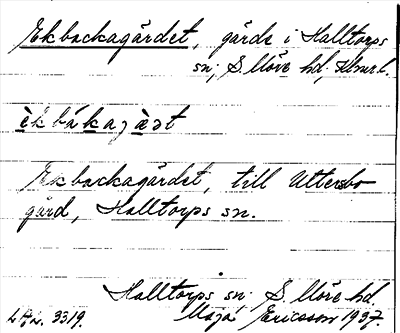 Ekbackagärdet, gärde i Halltorps
sn; S. Möre hd; Kbmrb.
èk bákaj æ̀ət
Ekbackagärdet, till Uttersbo
gård, Halltorps sn.
Halltorps sn S. Möre hd.
LAL. 3319. Maja Ericsson 1937.